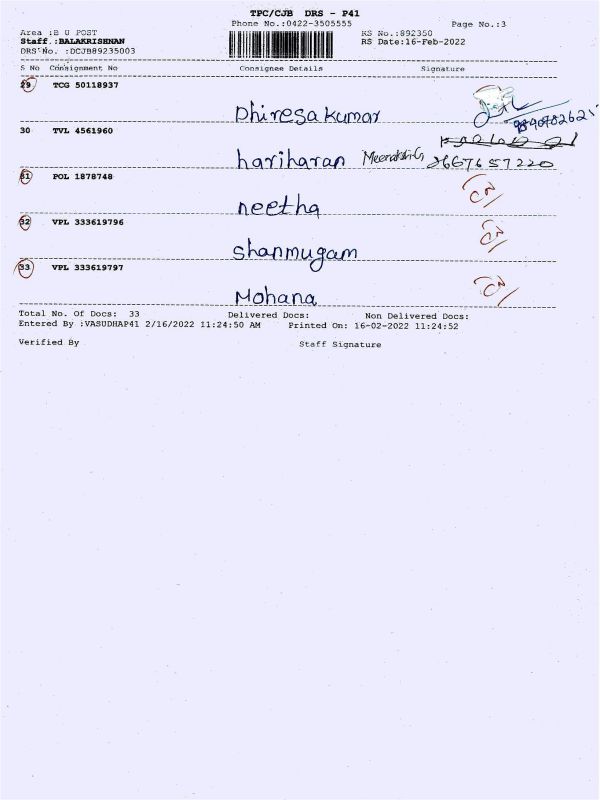 TPC/CJB DRS - P41
Phone No.:0422-3505555 Page No.:3
Area :B U POST RS No.:892350
Staff.:BALAKRISHNAN RS Date:16-Feb-2022
DRS No. :DCJB89235003
S No Consignment No Consignee Details Signature
29 TCG 50118937
Dhiresa kumar
30 TVL 4561960
hariharan Meenakshi.G 8667657220
31 POL 1878748
neetha
32 VPL 333619796
Shanmugam
33 VPL 333619797
Mohana
Total No. Of Docs: 33 Delivered Docs: Non Delivered Docs:
Entered By :VASUDHAP41 2/16/2022 11:24:50 AM Printed On: 16-02-2022 11:24:52
Verified By Staff Signature